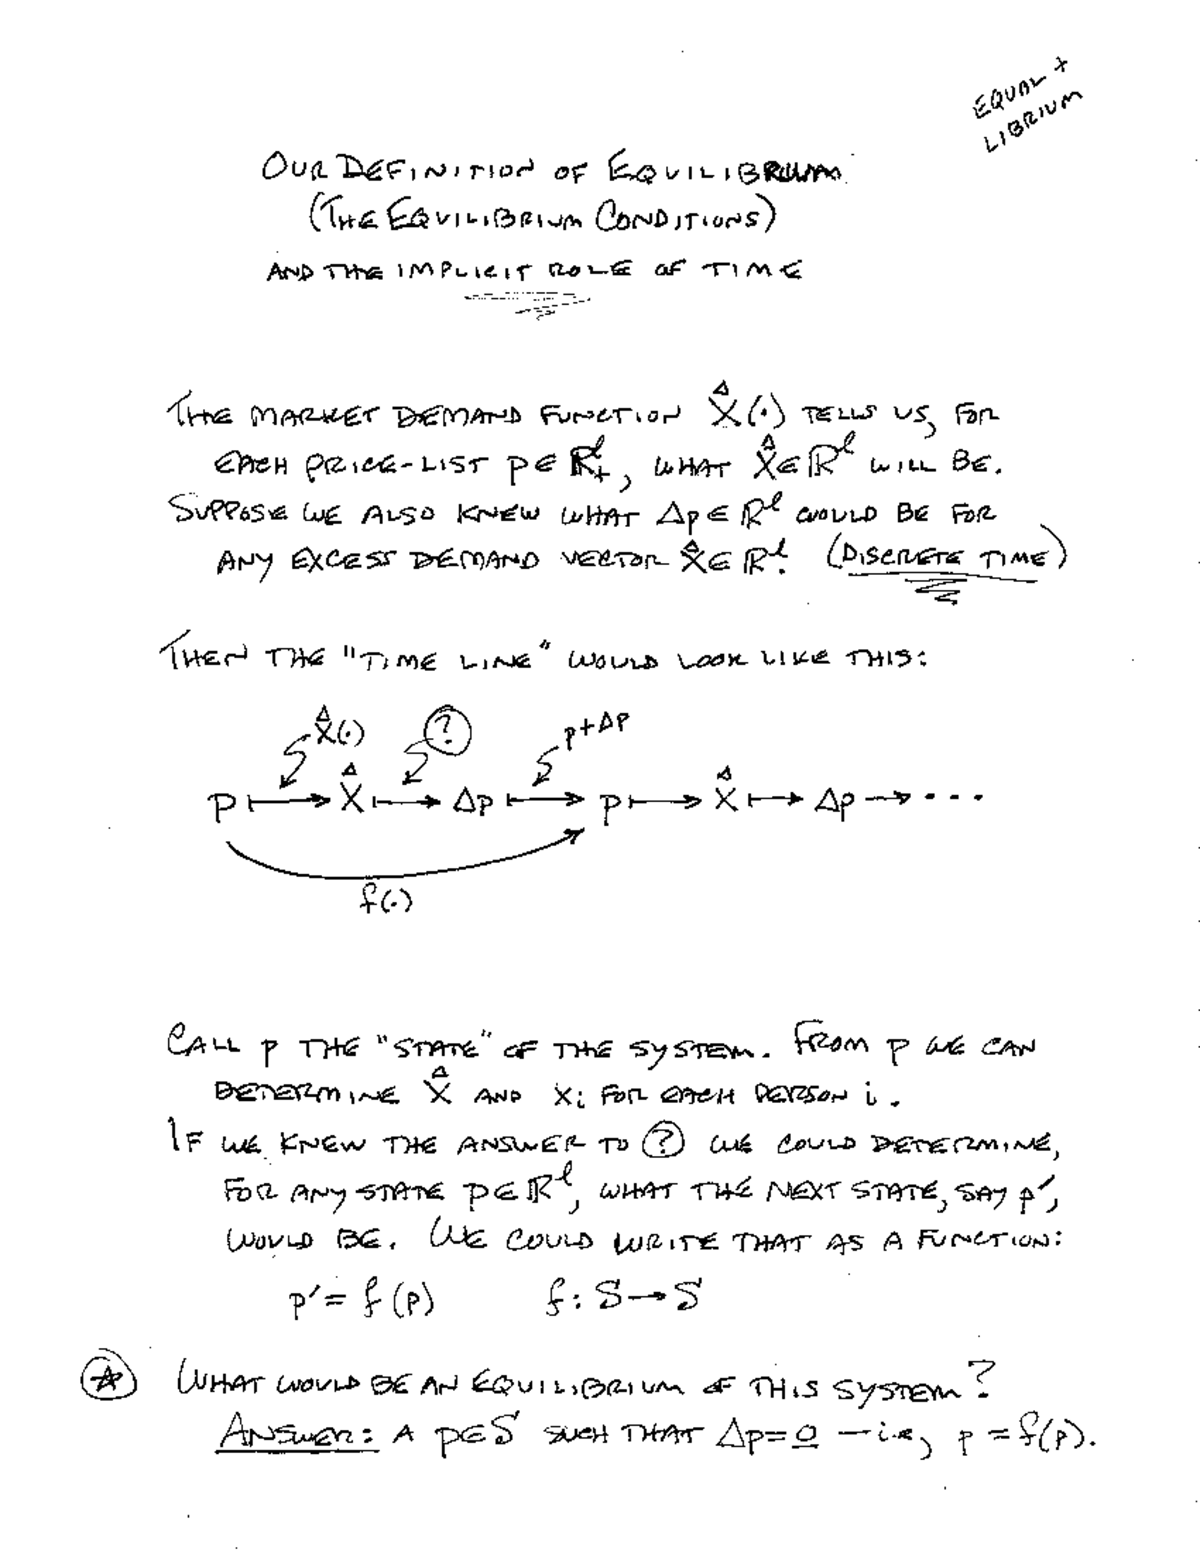 EQUAL +
LIBRIUM
OUR DEFINITION OF EQUILIBRIUM
(THE EQUILIBRIUM CONDITIONS)
AND THE IMPLICIT ROLE OF TIME
THE MARKET DEMAND FUNCTION X̂(·) TELLS US, FOR
EACH PRICE-LIST p∈ℝˡ₊, WHAT X̂∈ℝˡ WILL BE.
SUPPOSE WE ALSO KNEW WHAT Δp∈ℝˡ WOULD BE FOR
ANY EXCESS DEMAND VECTOR X̂∈ℝˡ. (DISCRETE TIME)
THEN THE "TIME LINE" WOULD LOOK LIKE THIS:
X̂(·) ? p+Δp
p ↦ X̂ ↦ Δp ↦ p ↦ X̂ ↦ Δp → ···
f(·)
CALL p THE "STATE" OF THE SYSTEM. FROM p WE CAN
DETERMINE X̂ AND xᵢ FOR EACH PERSON i.
IF WE KNEW THE ANSWER TO ? WE COULD DETERMINE,
FOR ANY STATE p∈ℝˡ, WHAT THE NEXT STATE, SAY p′,
WOULD BE. WE COULD WRITE THAT AS A FUNCTION:
p′ = f(p) f: S→S
* WHAT WOULD BE AN EQUILIBRIUM OF THIS SYSTEM?
ANSWER: A p∈S SUCH THAT Δp=0 — i.e., p = f(p).